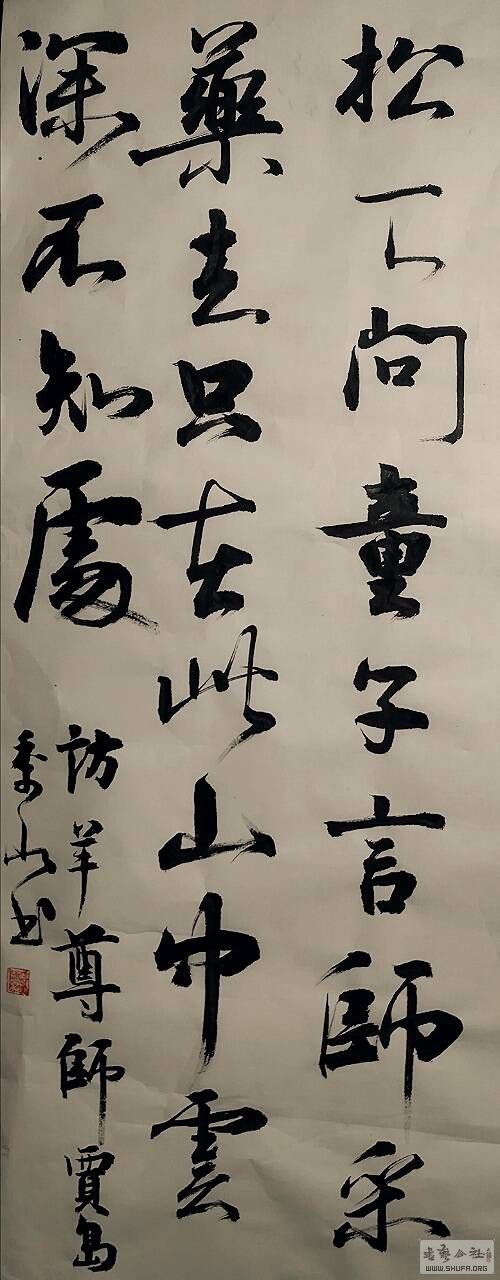 松下問童子言師采
藥去只在此山中雲
深不知處
訪羊尊師賈島
书
書藝公社
WWW.SHUFA.ORG